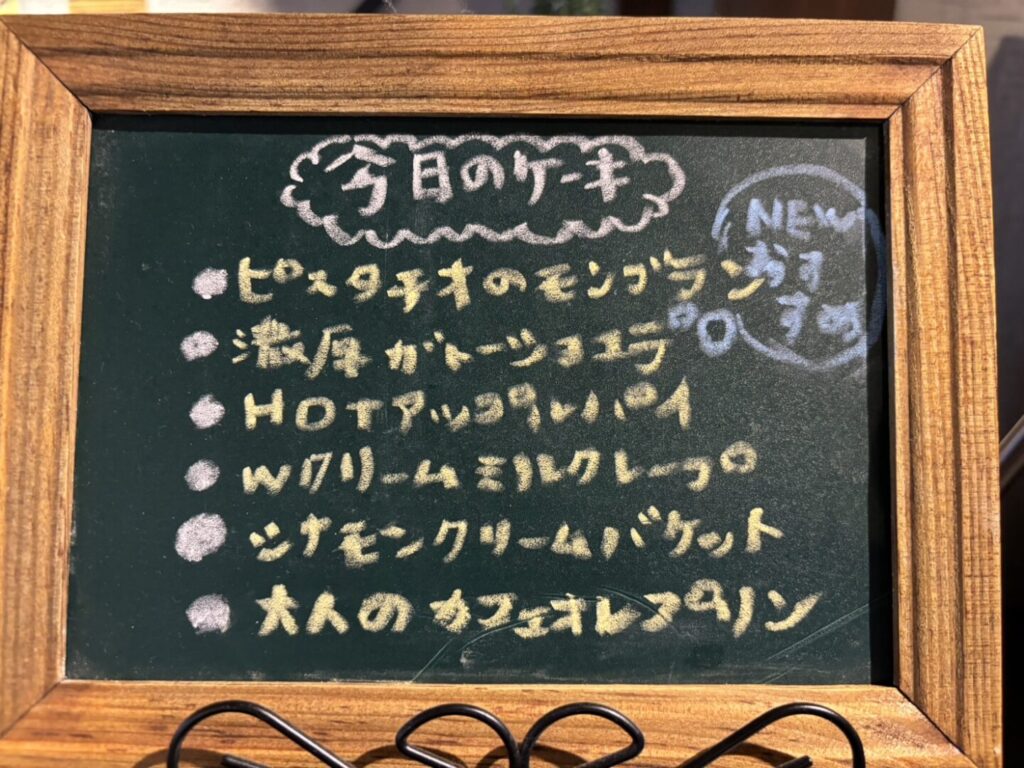 今日のケーキ
NEW
おす
すめ
ピスタチオのモンブラン
濃厚ガトーショコラ
HOTアップルパイ
Wクリームミルクレープ
シナモンクリームバケット
大人のカフェオレプリン